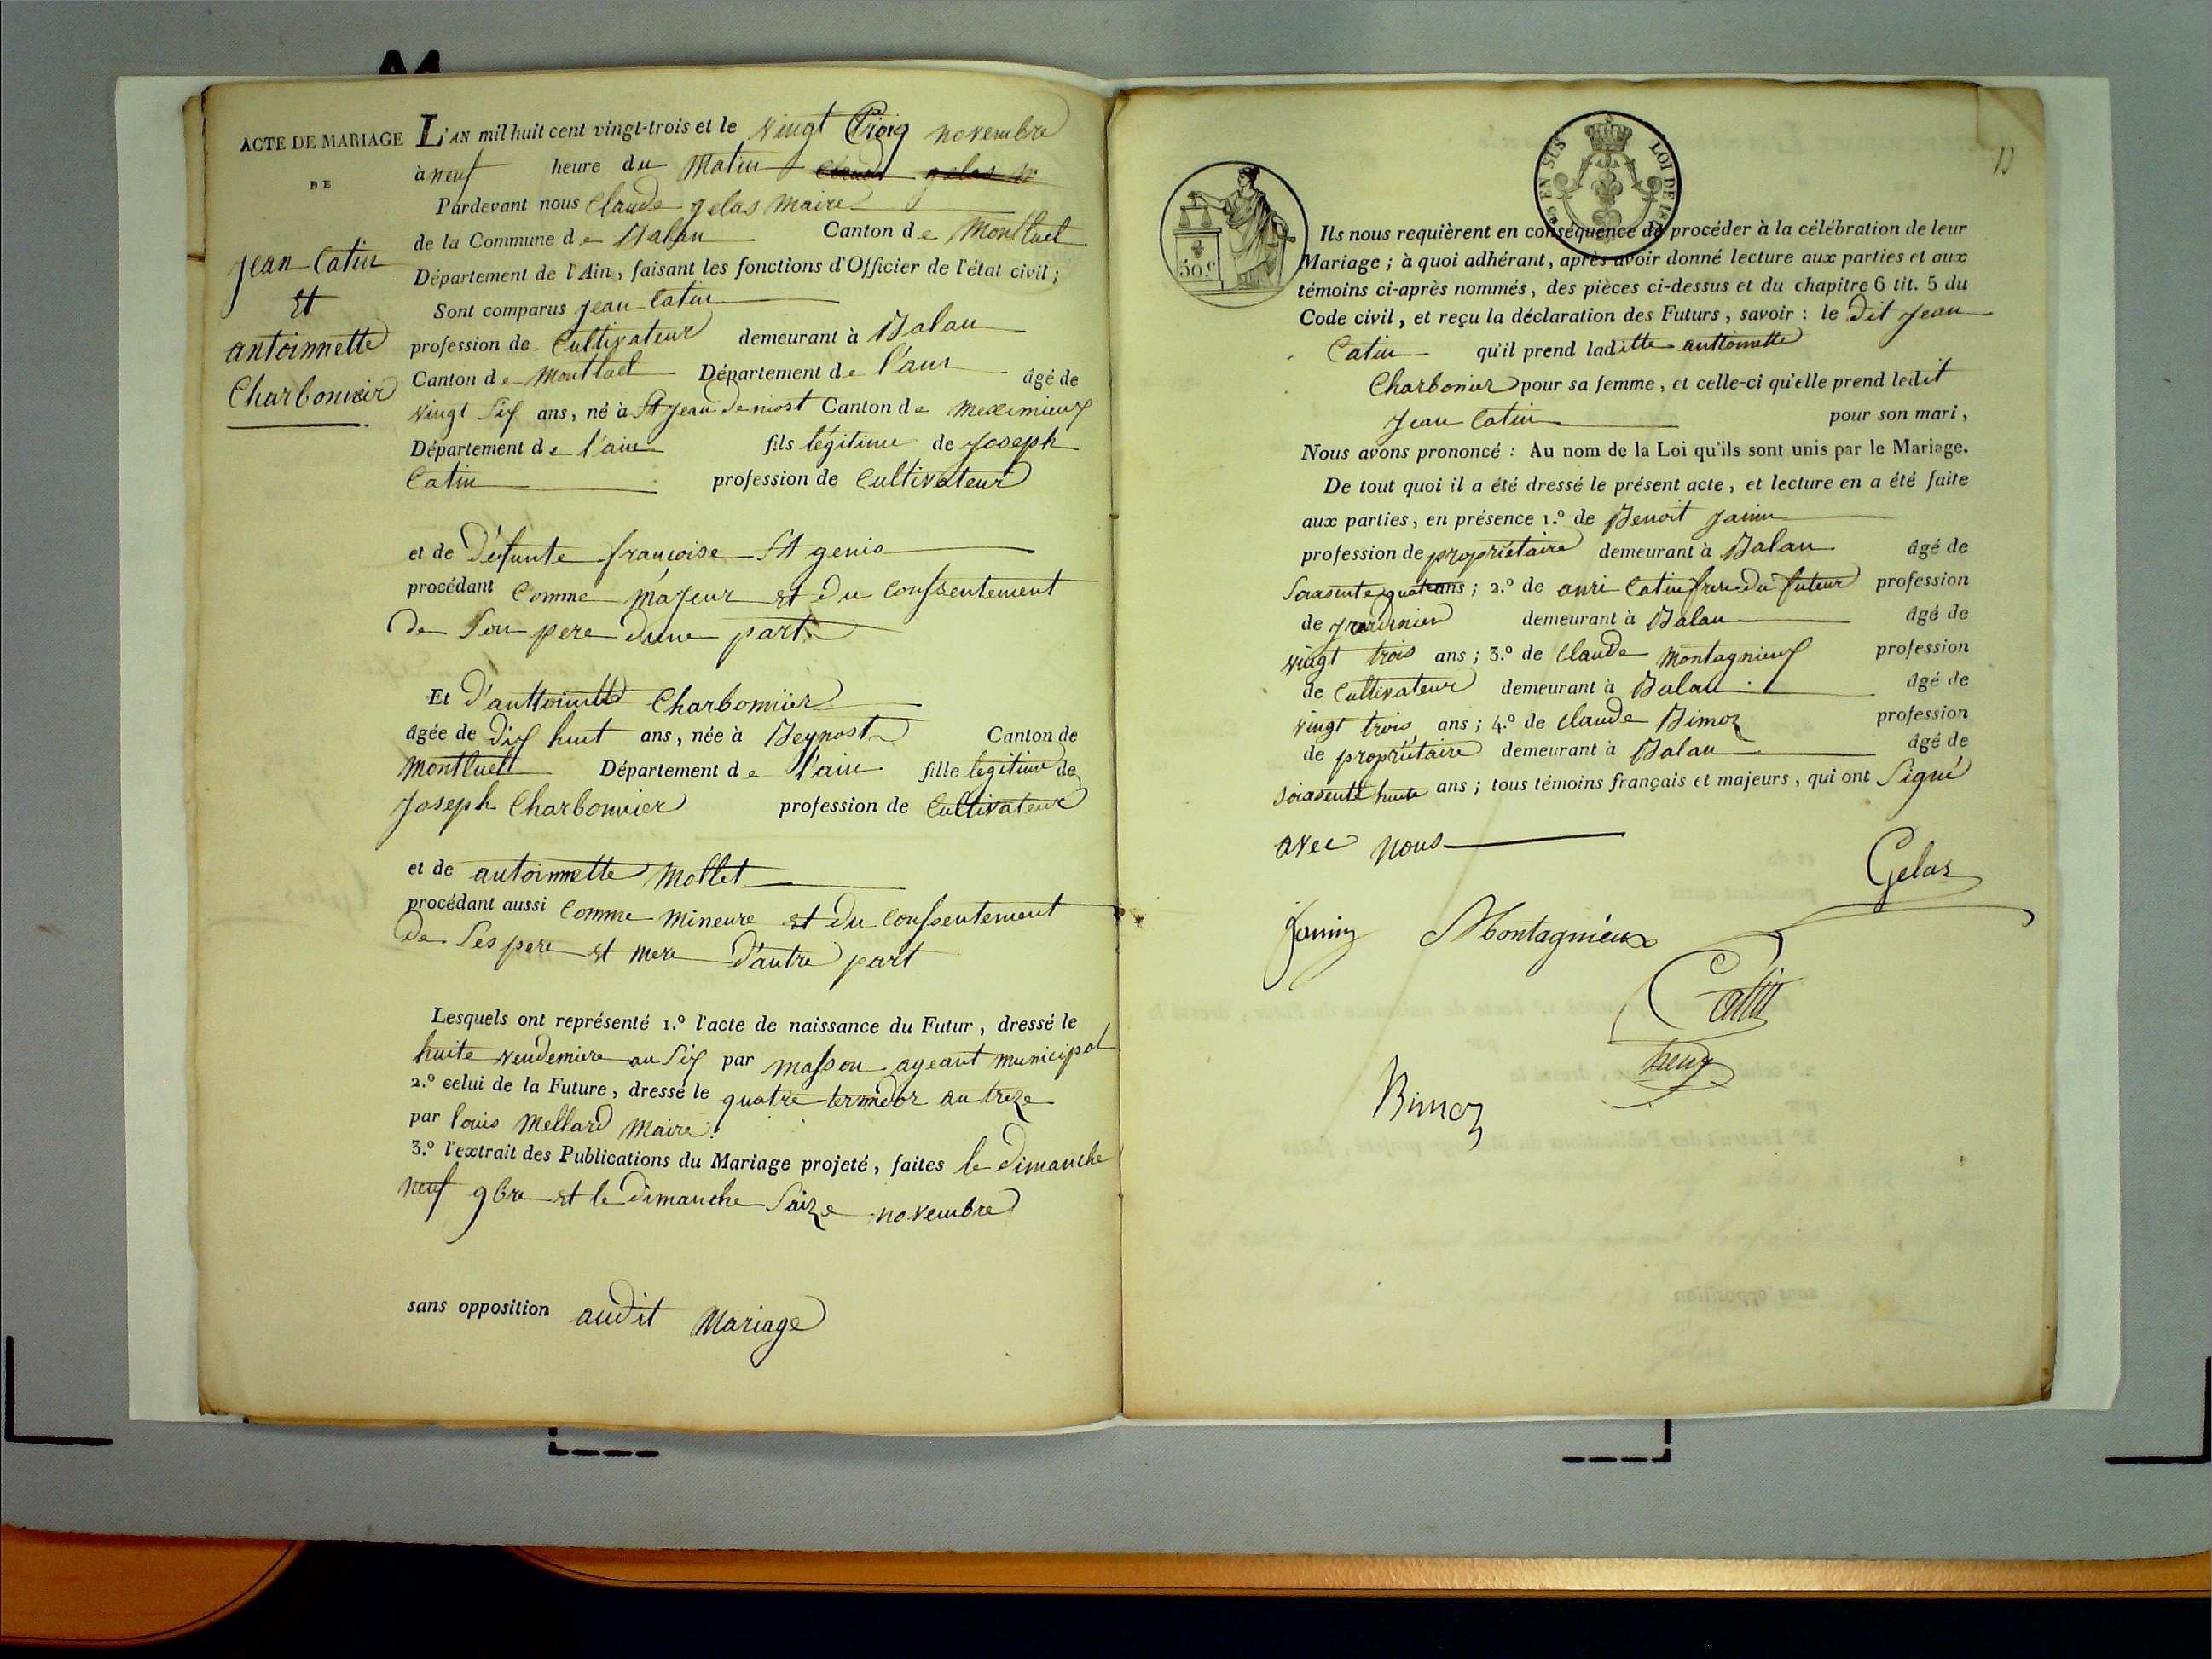 ACTE DE MARIAGE
DE
Jean Catin
et
antoinnette
Charbonnier
L'AN mil huit cent vingt-trois et le vingt novembre
à neuf heure du Matin
Pardevant nous Claude gelas maire
de la Commune de Balan Canton de Montluel
Département de l'Ain, faisant les fonctions d'Officier de l'état civil;
Sont comparus Jean Catin
profession de Cultivateur demeurant à Balan
Canton de Montluel Département de l'ain âgé de
vingt six ans, né à St Jean de niost Canton de Meximieux
Département de l'ain fils légitime de Joseph
Catin profession de Cultivateur
et de Défunte françoise St genis
procédant Comme majeur et du Consentement
de Son pere dune part
Et D'anttoinette Charbonniier
âgée de dix huit ans, née à Beynost Canton de
Montluel Département de l'ain fille legitime de
Joseph Charbonnier profession de Cultivateur
et de antoinnette Mollet
procédant aussi Comme Mineure et du Consentement
De Ses pere et mere D'autre part
Lesquels ont représenté 1.º l'acte de naissance du Futur, dressé le
huite vendemiere an six par Masson ageant municipal
2.º celui de la Future, dressé le quatre termedor an treze
par louis Mellard Maire.
3.º l'extrait des Publications du Mariage projeté, faites le dimanche
neuf 9bre et le dimanche Saize novembre
sans opposition audit Mariage
11
EN SUS LOI DE
50 c
Ils nous requièrent en conséquence de procéder à la célébration de leur
Mariage; à quoi adhérant, après avoir donné lecture aux parties et aux
témoins ci-après nommés, des pièces ci-dessus et du chapitre 6 tit. 5 du
Code civil, et reçu la déclaration des Futurs, savoir: le dit Jean
Catin qu'il prend laditte anttoinette
Charbonier pour sa femme, et celle-ci qu'elle prend ledit
Jean Catin pour son mari,
Nous avons prononcé: Au nom de la Loi qu'ils sont unis par le Mariage.
De tout quoi il a été dressé le présent acte, et lecture en a été faite
aux parties, en présence 1.º de Benoit Janin
profession de propriétaire demeurant à Balan âgé de
Soixente quatre ans; 2.º de anri Catin frere du futeur profession
de Jardinier demeurant à Balan âgé de
vingt trois ans; 3.º de Claude Montagnieux profession
de Cultivateur demeurant à Balan âgé de
vingt trois ans; 4.º de Claude Bimoz profession
de propriétaire demeurant à Balan âgé de
soixente huite ans; tous témoins français et majeurs, qui ont Signé
avec nous
Gelas
Janin Montagnieux
Catin
henry
Bimoz